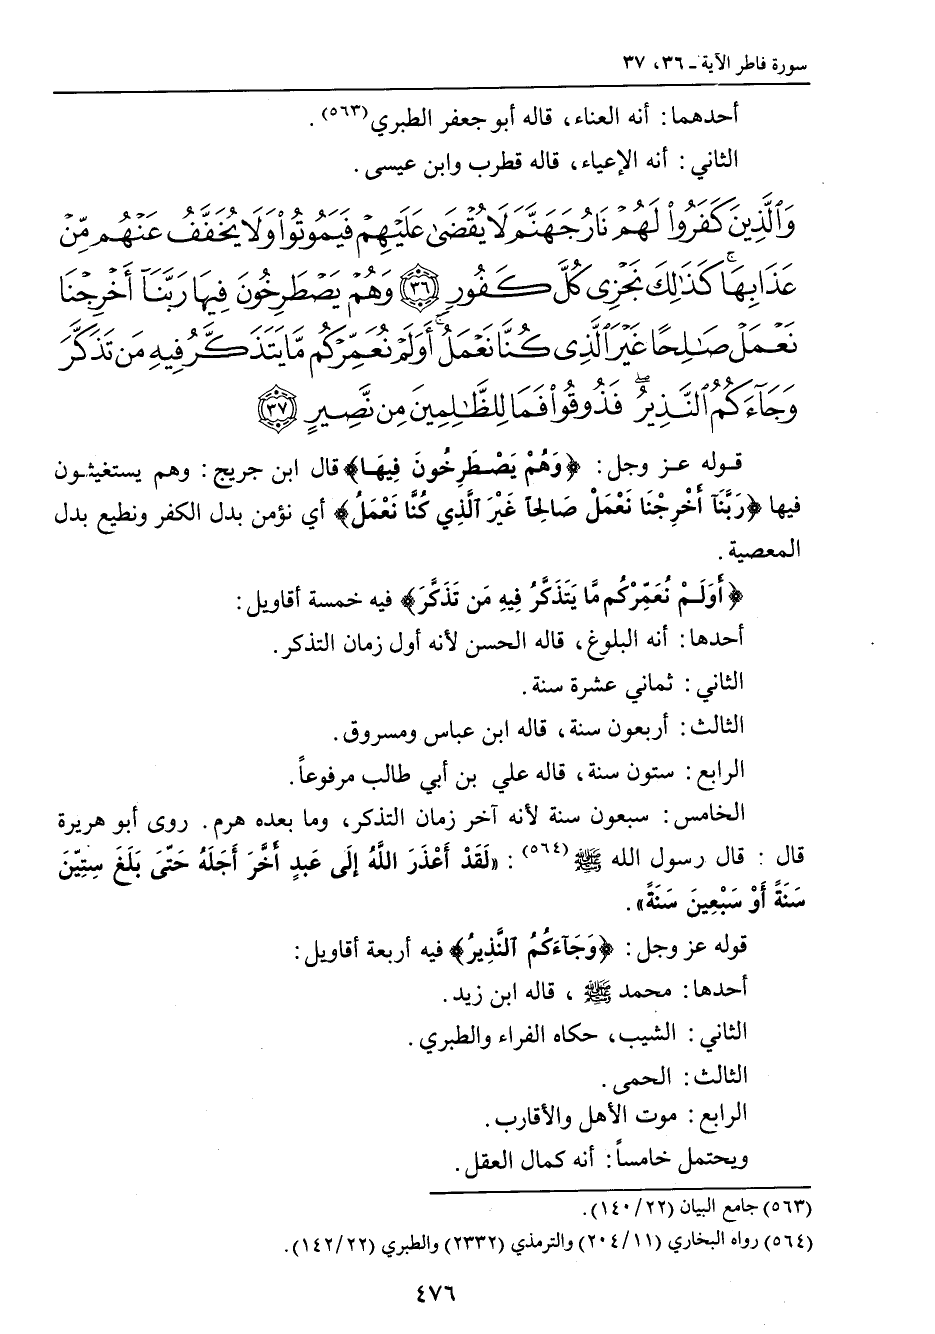 سورة فاطر الآية ـ ٣٦، ٣٧
أحدهما: أنه العناء، قاله أبو جعفر الطبري(٥٦٣).
الثاني: أنه الإعياء، قاله قطرب وابن عيسى.
وَٱلَّذِينَ كَفَرُوا۟ لَهُمْ نَارُ جَهَنَّمَ لَا يُقْضَىٰ عَلَيْهِمْ فَيَمُوتُوا۟ وَلَا يُخَفَّفُ عَنْهُم مِّنْ
عَذَابِهَا ۚ كَذَٰلِكَ نَجْزِى كُلَّ كَفُورٍ ٣٦ وَهُمْ يَصْطَرِخُونَ فِيهَا رَبَّنَآ أَخْرِجْنَا
نَعْمَلْ صَـٰلِحًا غَيْرَ ٱلَّذِى كُنَّا نَعْمَلُ ۚ أَوَلَمْ نُعَمِّرْكُم مَّا يَتَذَكَّرُ فِيهِ مَن تَذَكَّرَ
وَجَآءَكُمُ ٱلنَّذِيرُ ۖ فَذُوقُوا۟ فَمَا لِلظَّـٰلِمِينَ مِن نَّصِيرٍ ٣٧
قوله عز وجل: ﴿وَهُمْ يَصْطَرِخُونَ فِيهَا﴾ قال ابن جريج: وهم يستغيثون
فيها ﴿رَبَّنَآ أَخْرِجْنَا نَعْمَلْ صَالِحَاً غَيْرَ ٱلَّذِي كُنَّا نَعْمَلُ﴾ أي نؤمن بدل الكفر ونطيع بدل
المعصية.
﴿أَوَلَـمْ نُعَمِّرْكُم مَّا يَتَذَكَّرُ فِيهِ مَن تَذَكَّرَ﴾ فيه خمسة أقاويل:
أحدها: أنه البلوغ، قاله الحسن لأنه أول زمان التذكر.
الثاني: ثماني عشرة سنة.
الثالث: أربعون سنة، قاله ابن عباس ومسروق.
الرابع: ستون سنة، قاله علي بن أبي طالب مرفوعاً.
الخامس: سبعون سنة لأنه آخر زمان التذكر، وما بعده هرم. روى أبو هريرة
قال: قال رسول الله ﷺ(٥٦٤): «لَقَدْ أَعْذَرَ اللَّهُ إِلَى عَبدٍ أَخَّرَ أَجَلَهُ حَتَّىٰ بَلَغَ سِتِّيْنَ
سَنَةً أَوْ سَبْعِينَ سَنَةً».
قوله عز وجل: ﴿وَجَآءَكُمُ ٱلنَّذِيرُ﴾ فيه أربعة أقاويل:
أحدها: محمد ﷺ، قاله ابن زيد.
الثاني: الشيب، حكاه الفراء والطبري.
الثالث: الحمى.
الرابع: موت الأهل والأقارب.
ويحتمل خامساً: أنه كمال العقل.
(٥٦٣) جامع البيان (١٤٠/٢٢).
(٥٦٤) رواه البخاري (٢٠٤/١١) والترمذي (٢٣٣٢) والطبري (١٤٢/٢٢).
٤٧٦